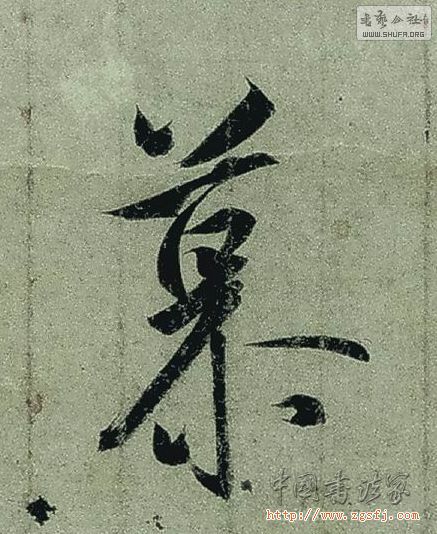 書藝公社
WWW.SHUFA.ORG
慕
中国书法家
http://www.zgsfj.com